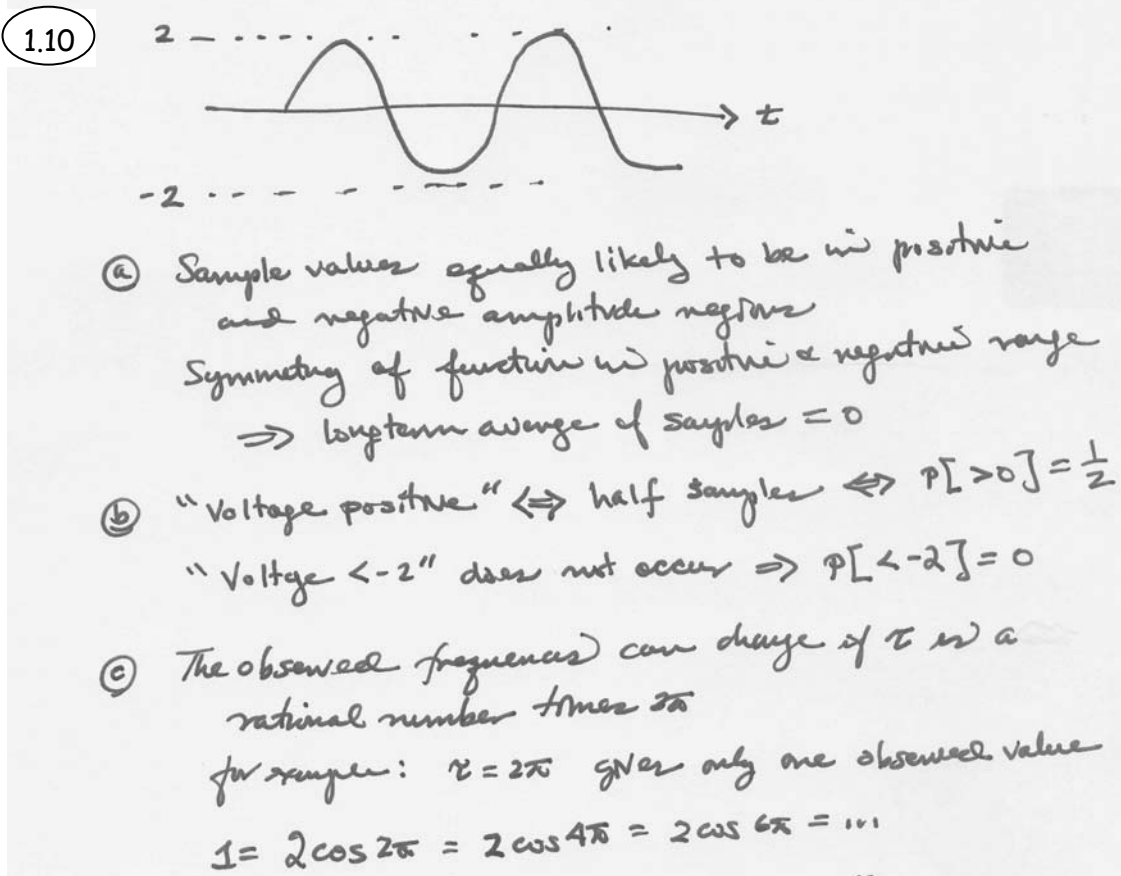 1.10
2
t
-2
(a) Sample values equally likely to be in positive
and negative amplitude regions
Symmetry of function in positive & negative range
⇒ longterm average of samples = 0
(b) "Voltage positive" ⇔ half samples ⇔ P[>0] = 1/2
"Voltge <-2" does not occur ⇒ P[<-2] = 0
(c) The observed frequencies can change if τ is a
rational number times 2π
for example: τ = 2π gives only one observed value
1 = 2 cos 2π = 2 cos 4π = 2 cos 6π = ...